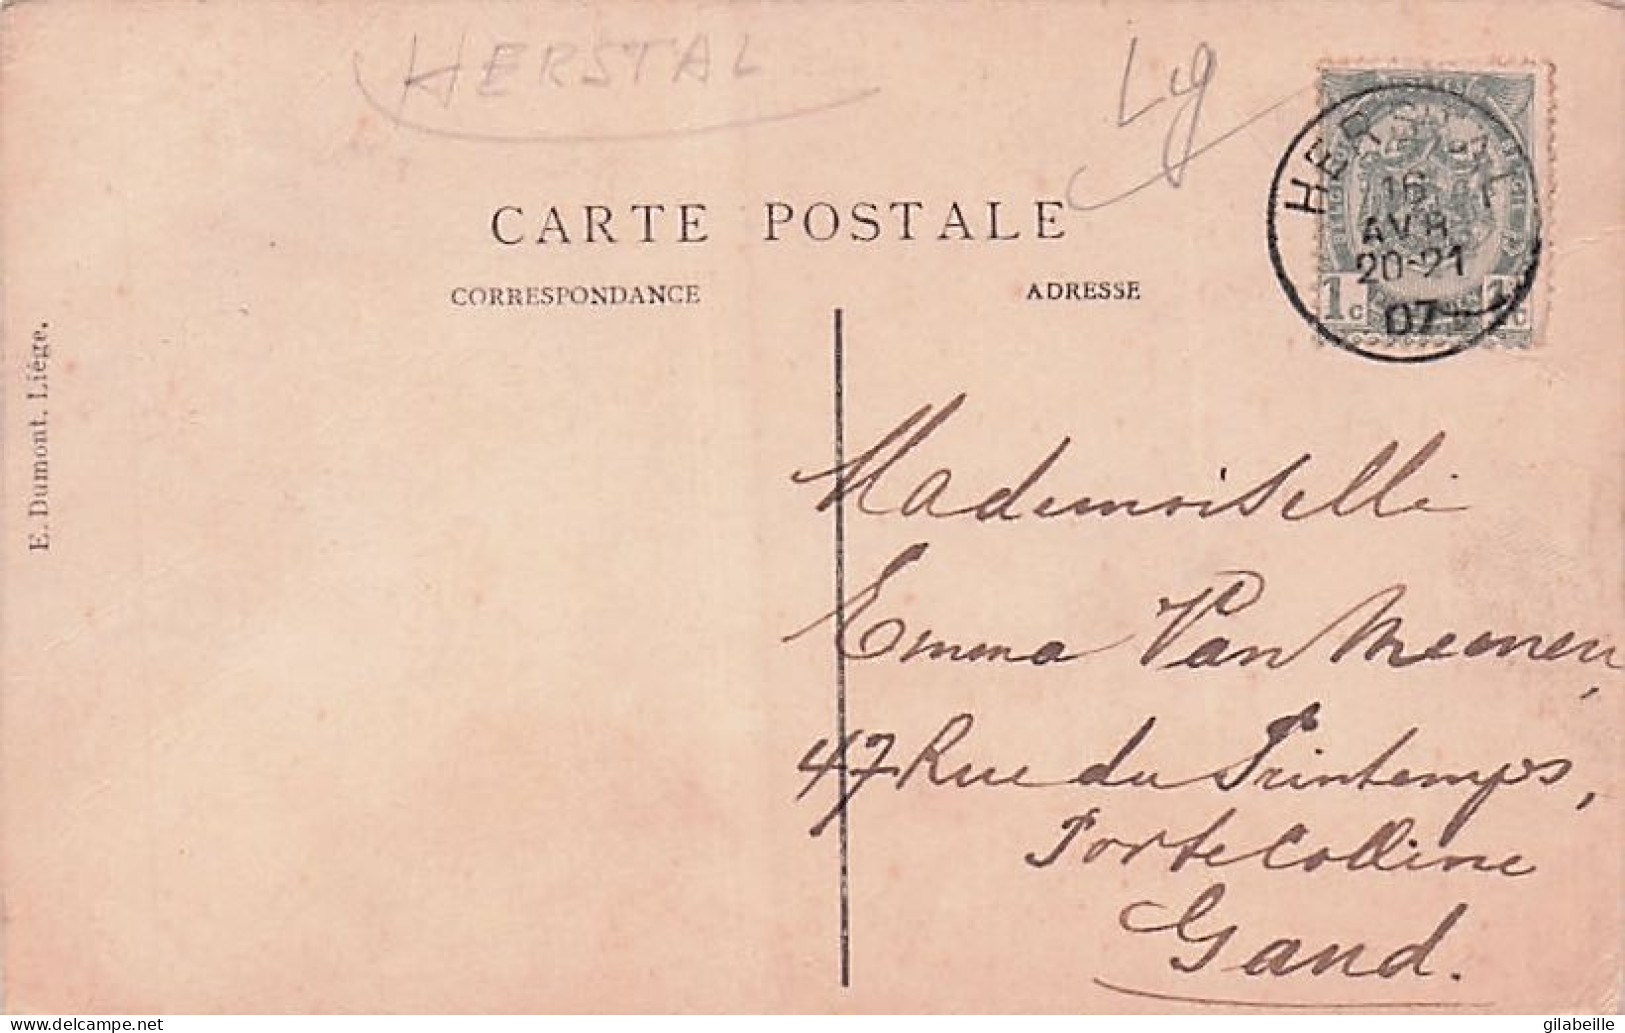 HERSTAL
Lg
HERSTAL
16
AVR
20-21
07
1c 1c
CARTE POSTALE
CORRESPONDANCE
ADRESSE
E. Dumont. Liége.
Mademoiselle
Emma Van Meenen,
47 Rue du Printemps,
Porte Colline
Gand.
www.delcampe.net
gilabeille